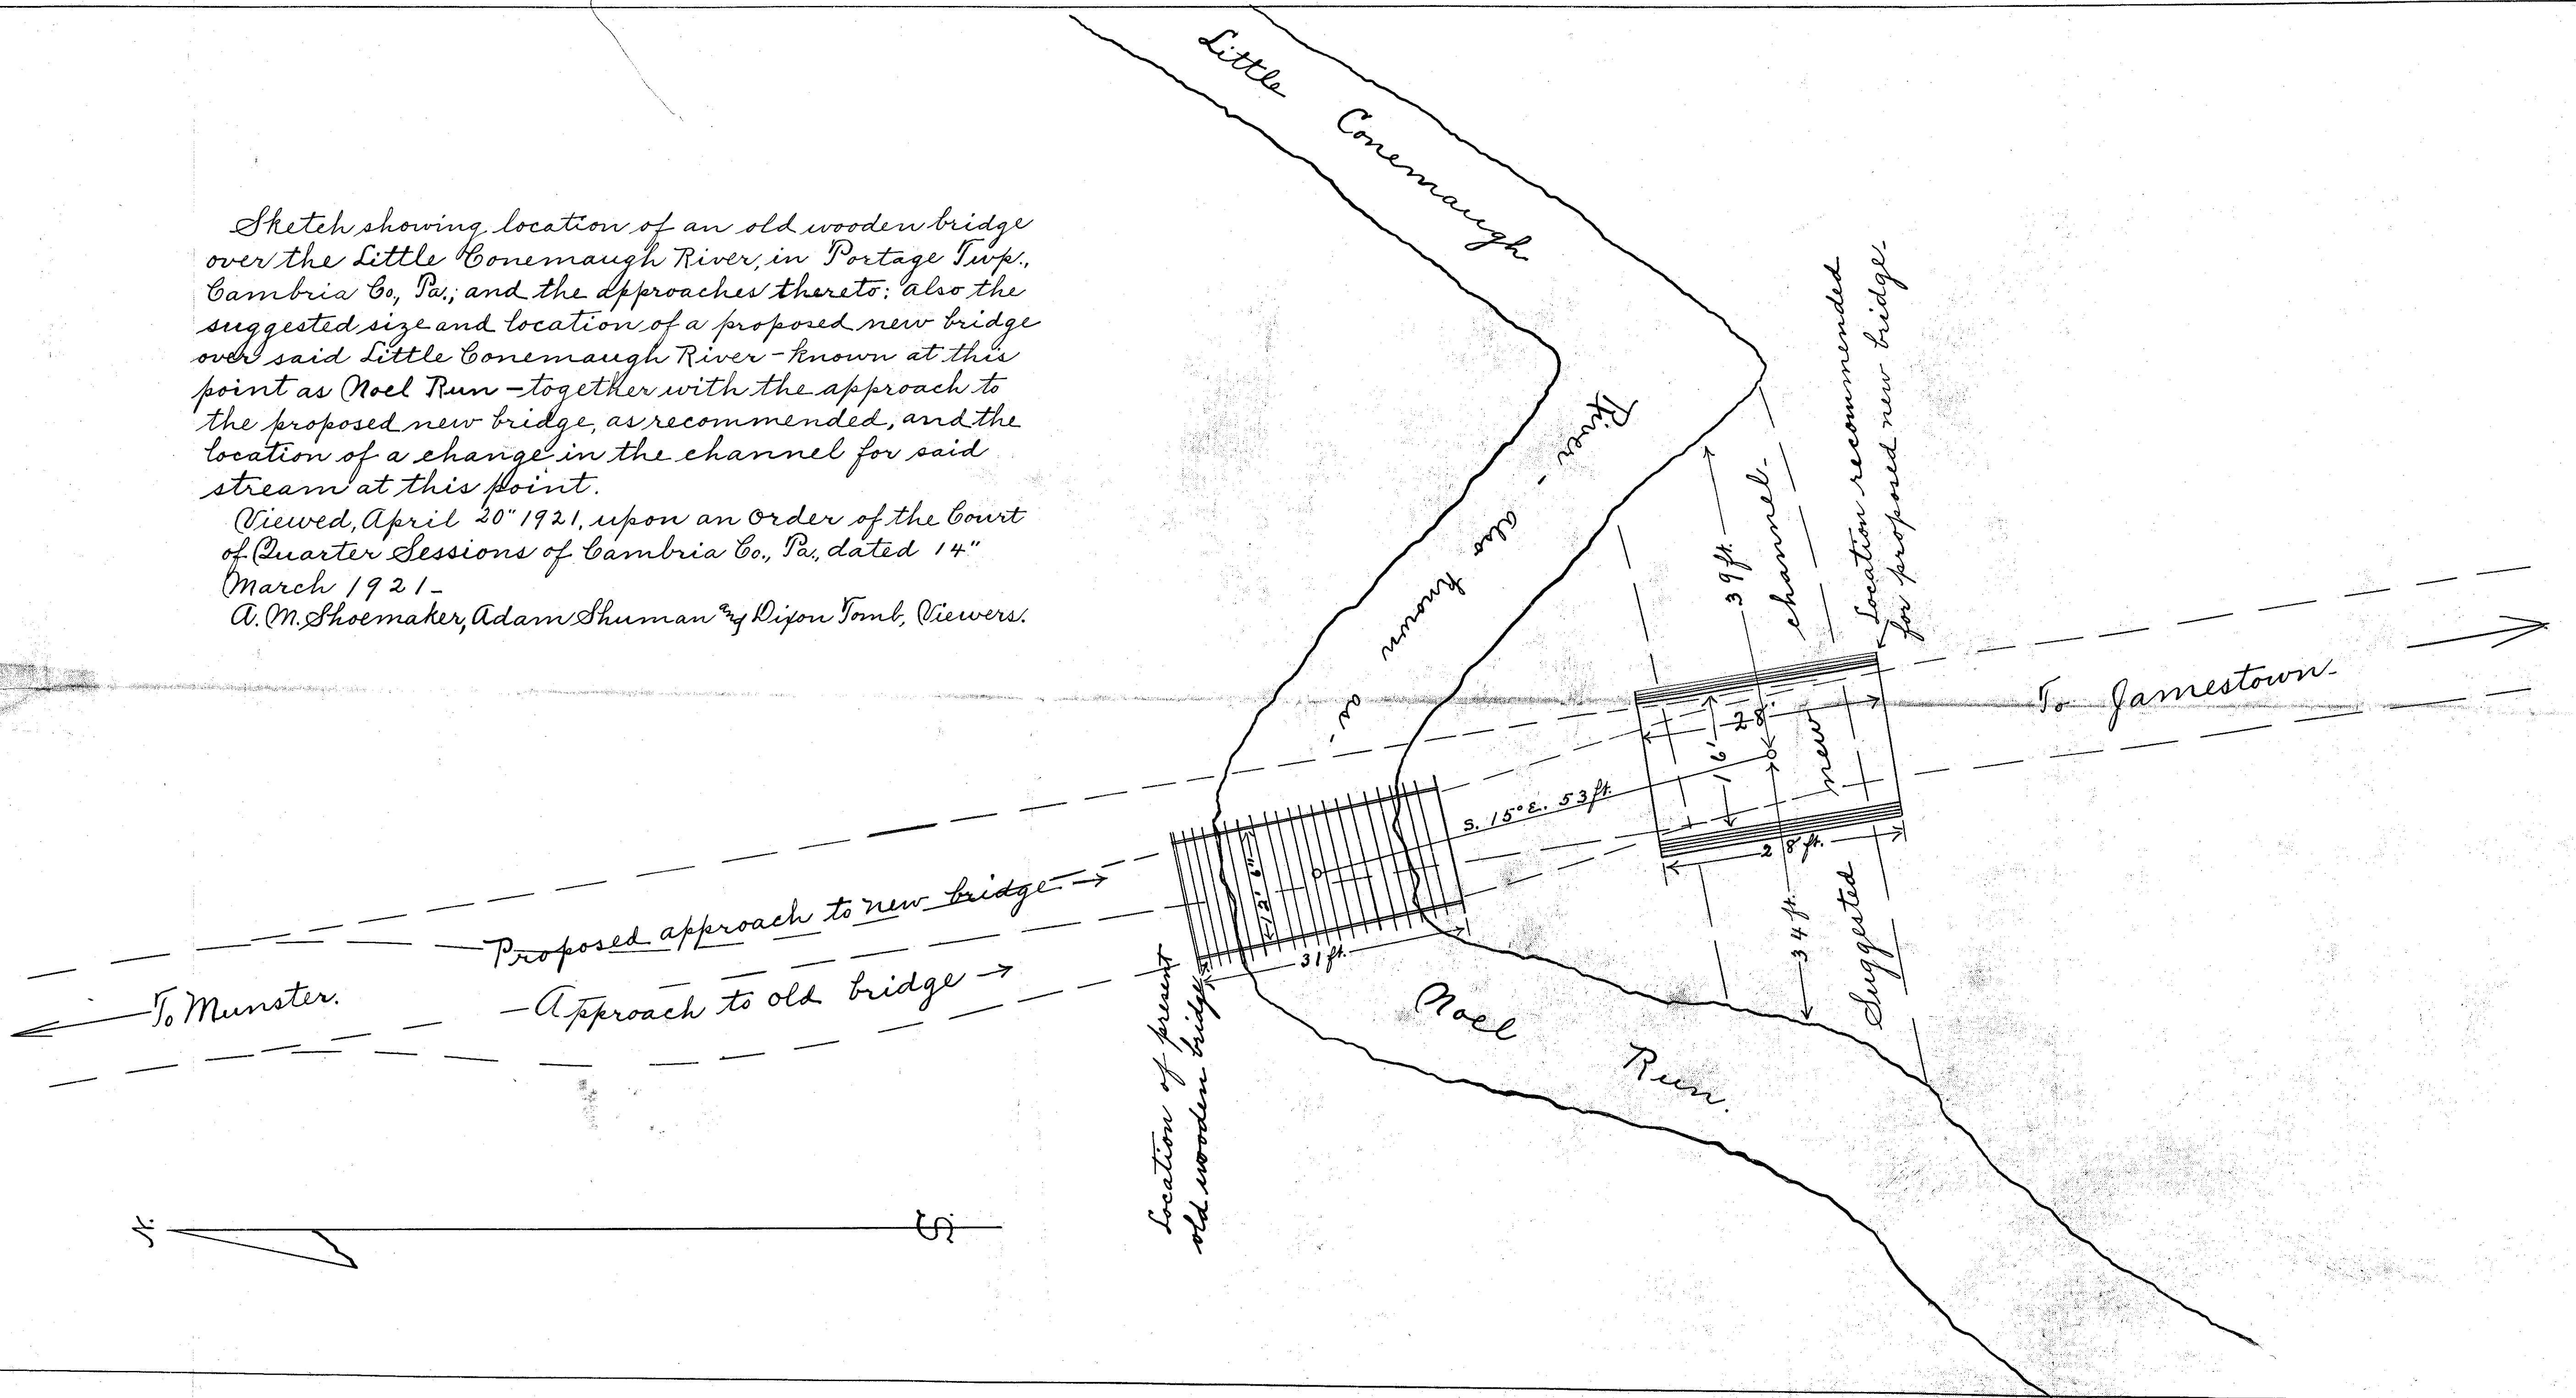 Sketch showing location of an old wooden bridge
over the Little Conemaugh River, in Portage Twp.,
Cambria Co., Pa.; and the approaches thereto: also the
suggested size and location of a proposed new bridge
over said Little Conemaugh River - known at this
point as Noel Run - together with the approach to
the proposed new bridge, as recommended, and the
location of a change in the channel for said
stream at this point.
Viewed, April 20" 1921, upon an Order of the Court
of Quarter Sessions of Cambria Co., Pa., dated 14"
March 1921-
A. M. Shoemaker, Adam Shuman and Dixon Tomb, Viewers.
Little Conemaugh
River - also known as -
Noel Run.
Location recommended
for proposed new bridge.
39 ft.
Suggested new channel.
28'
16'
28 ft.
34 ft.
S. 15° E. 53 ft.
12' 6"
31 ft.
To Jamestown-
Proposed approach to new bridge →
To Munster.
- Approach to old bridge →
Location of present
old wooden bridge
N.
S.